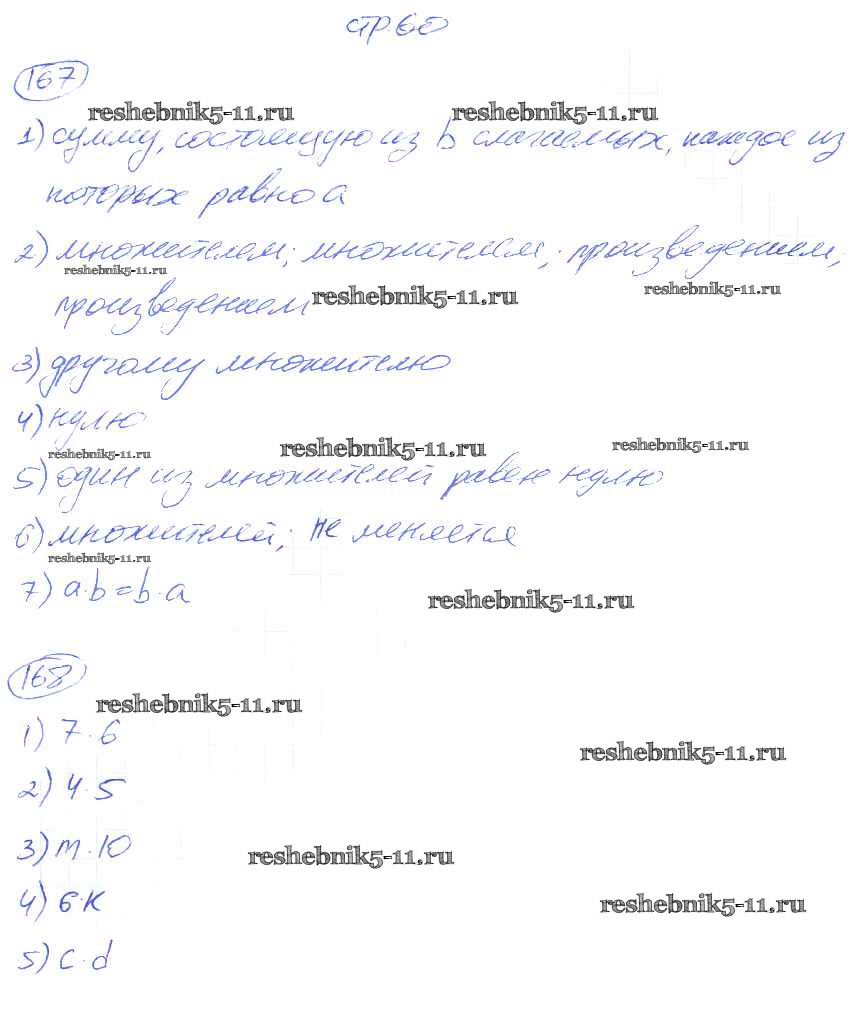 стр.60
167
reshebnik5-11.ru reshebnik5-11.ru
1) сумму, состоящую из b слагаемых, каждое из
которых равно a
2) множителем; множителем; произведением;
reshebnik5-11.ru
произведением reshebnik5-11.ru reshebnik5-11.ru
3) другому множителю
4) нулю
reshebnik5-11.ru reshebnik5-11.ru reshebnik5-11.ru
5) один из множителей равен нулю
6) множителей; не меняется
reshebnik5-11.ru
7) a·b=b·a reshebnik5-11.ru
168
reshebnik5-11.ru
1) 7·6
reshebnik5-11.ru
2) 4·5
3) m·10 reshebnik5-11.ru
4) 6·K reshebnik5-11.ru
5) c·d